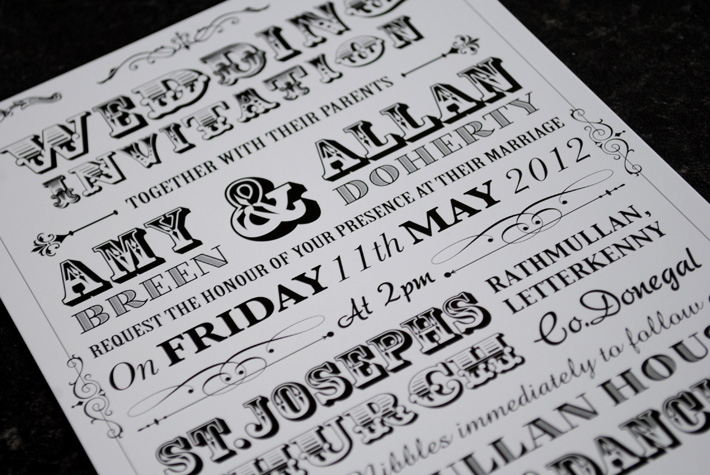 WEDDING
INVITATION
TOGETHER WITH THEIR PARENTS
AMY & ALLAN
BREEN DOHERTY
REQUEST THE HONOUR OF YOUR PRESENCE AT THEIR MARRIAGE
On FRIDAY 11th MAY 2012
At 2pm
ST.JOSEPHS RATHMULLAN,
LETTERKENNY
CHURCH Co.Donegal
Nibbles immediately to follow